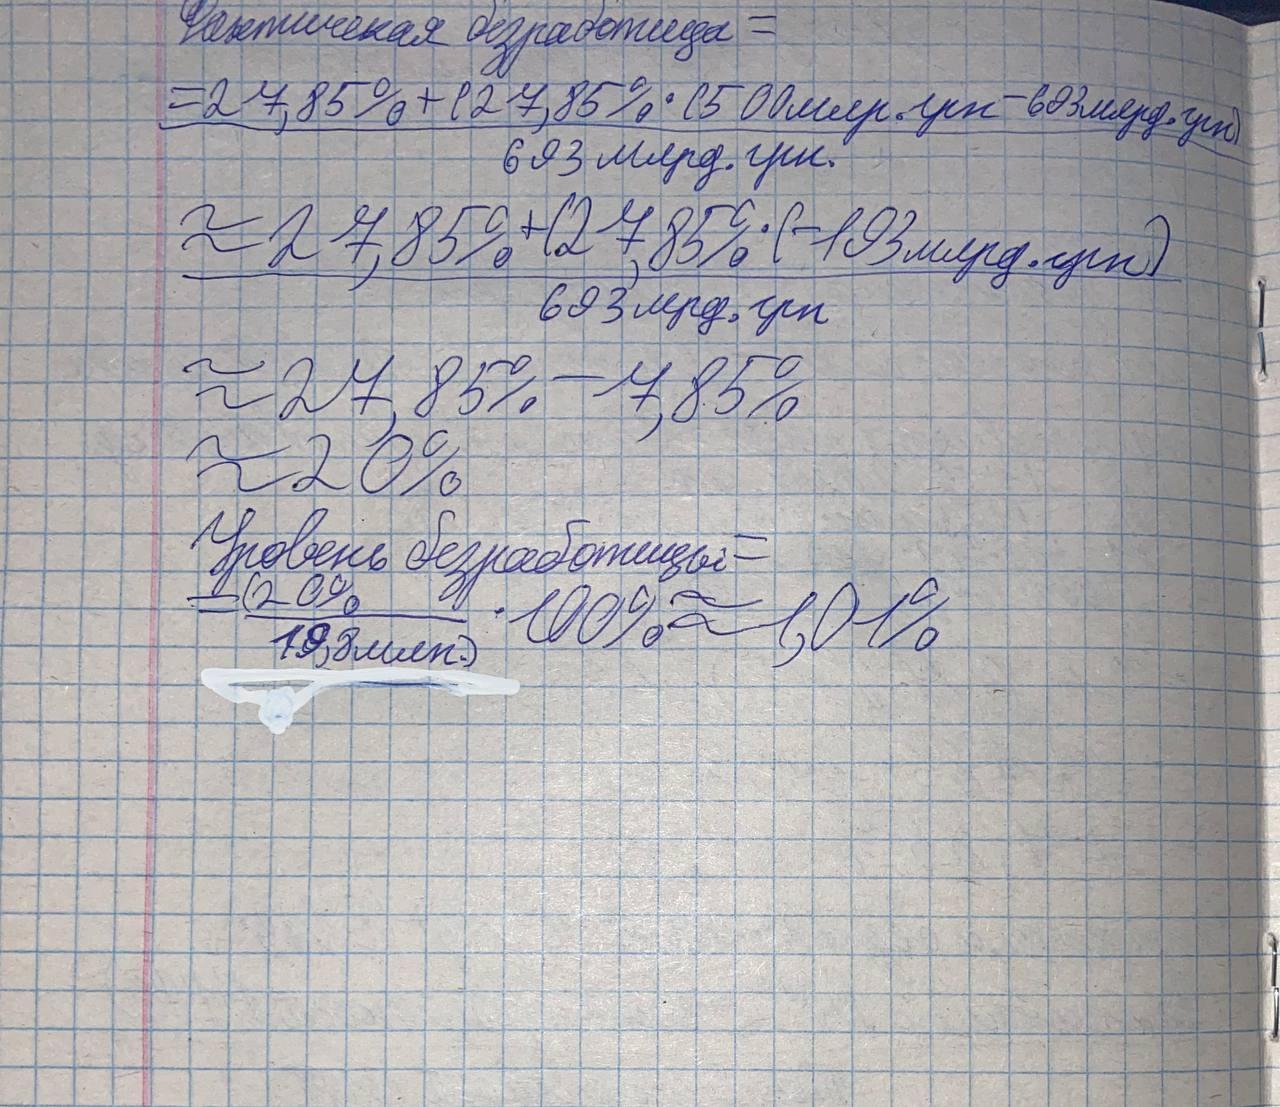 Фактическая безработица =
= 27,85% + (27,85% · (500млр. грн - 693млрд. грн)
693 млрд. грн.
≈ 27,85% + (27,85% · (-193млрд. грн)
693 млрд. грн
≈ 27,85% - 7,85%
≈ 20%
Уровень безработицы =
= (20% · 100% ≈ 1,01%
19,8млн.)